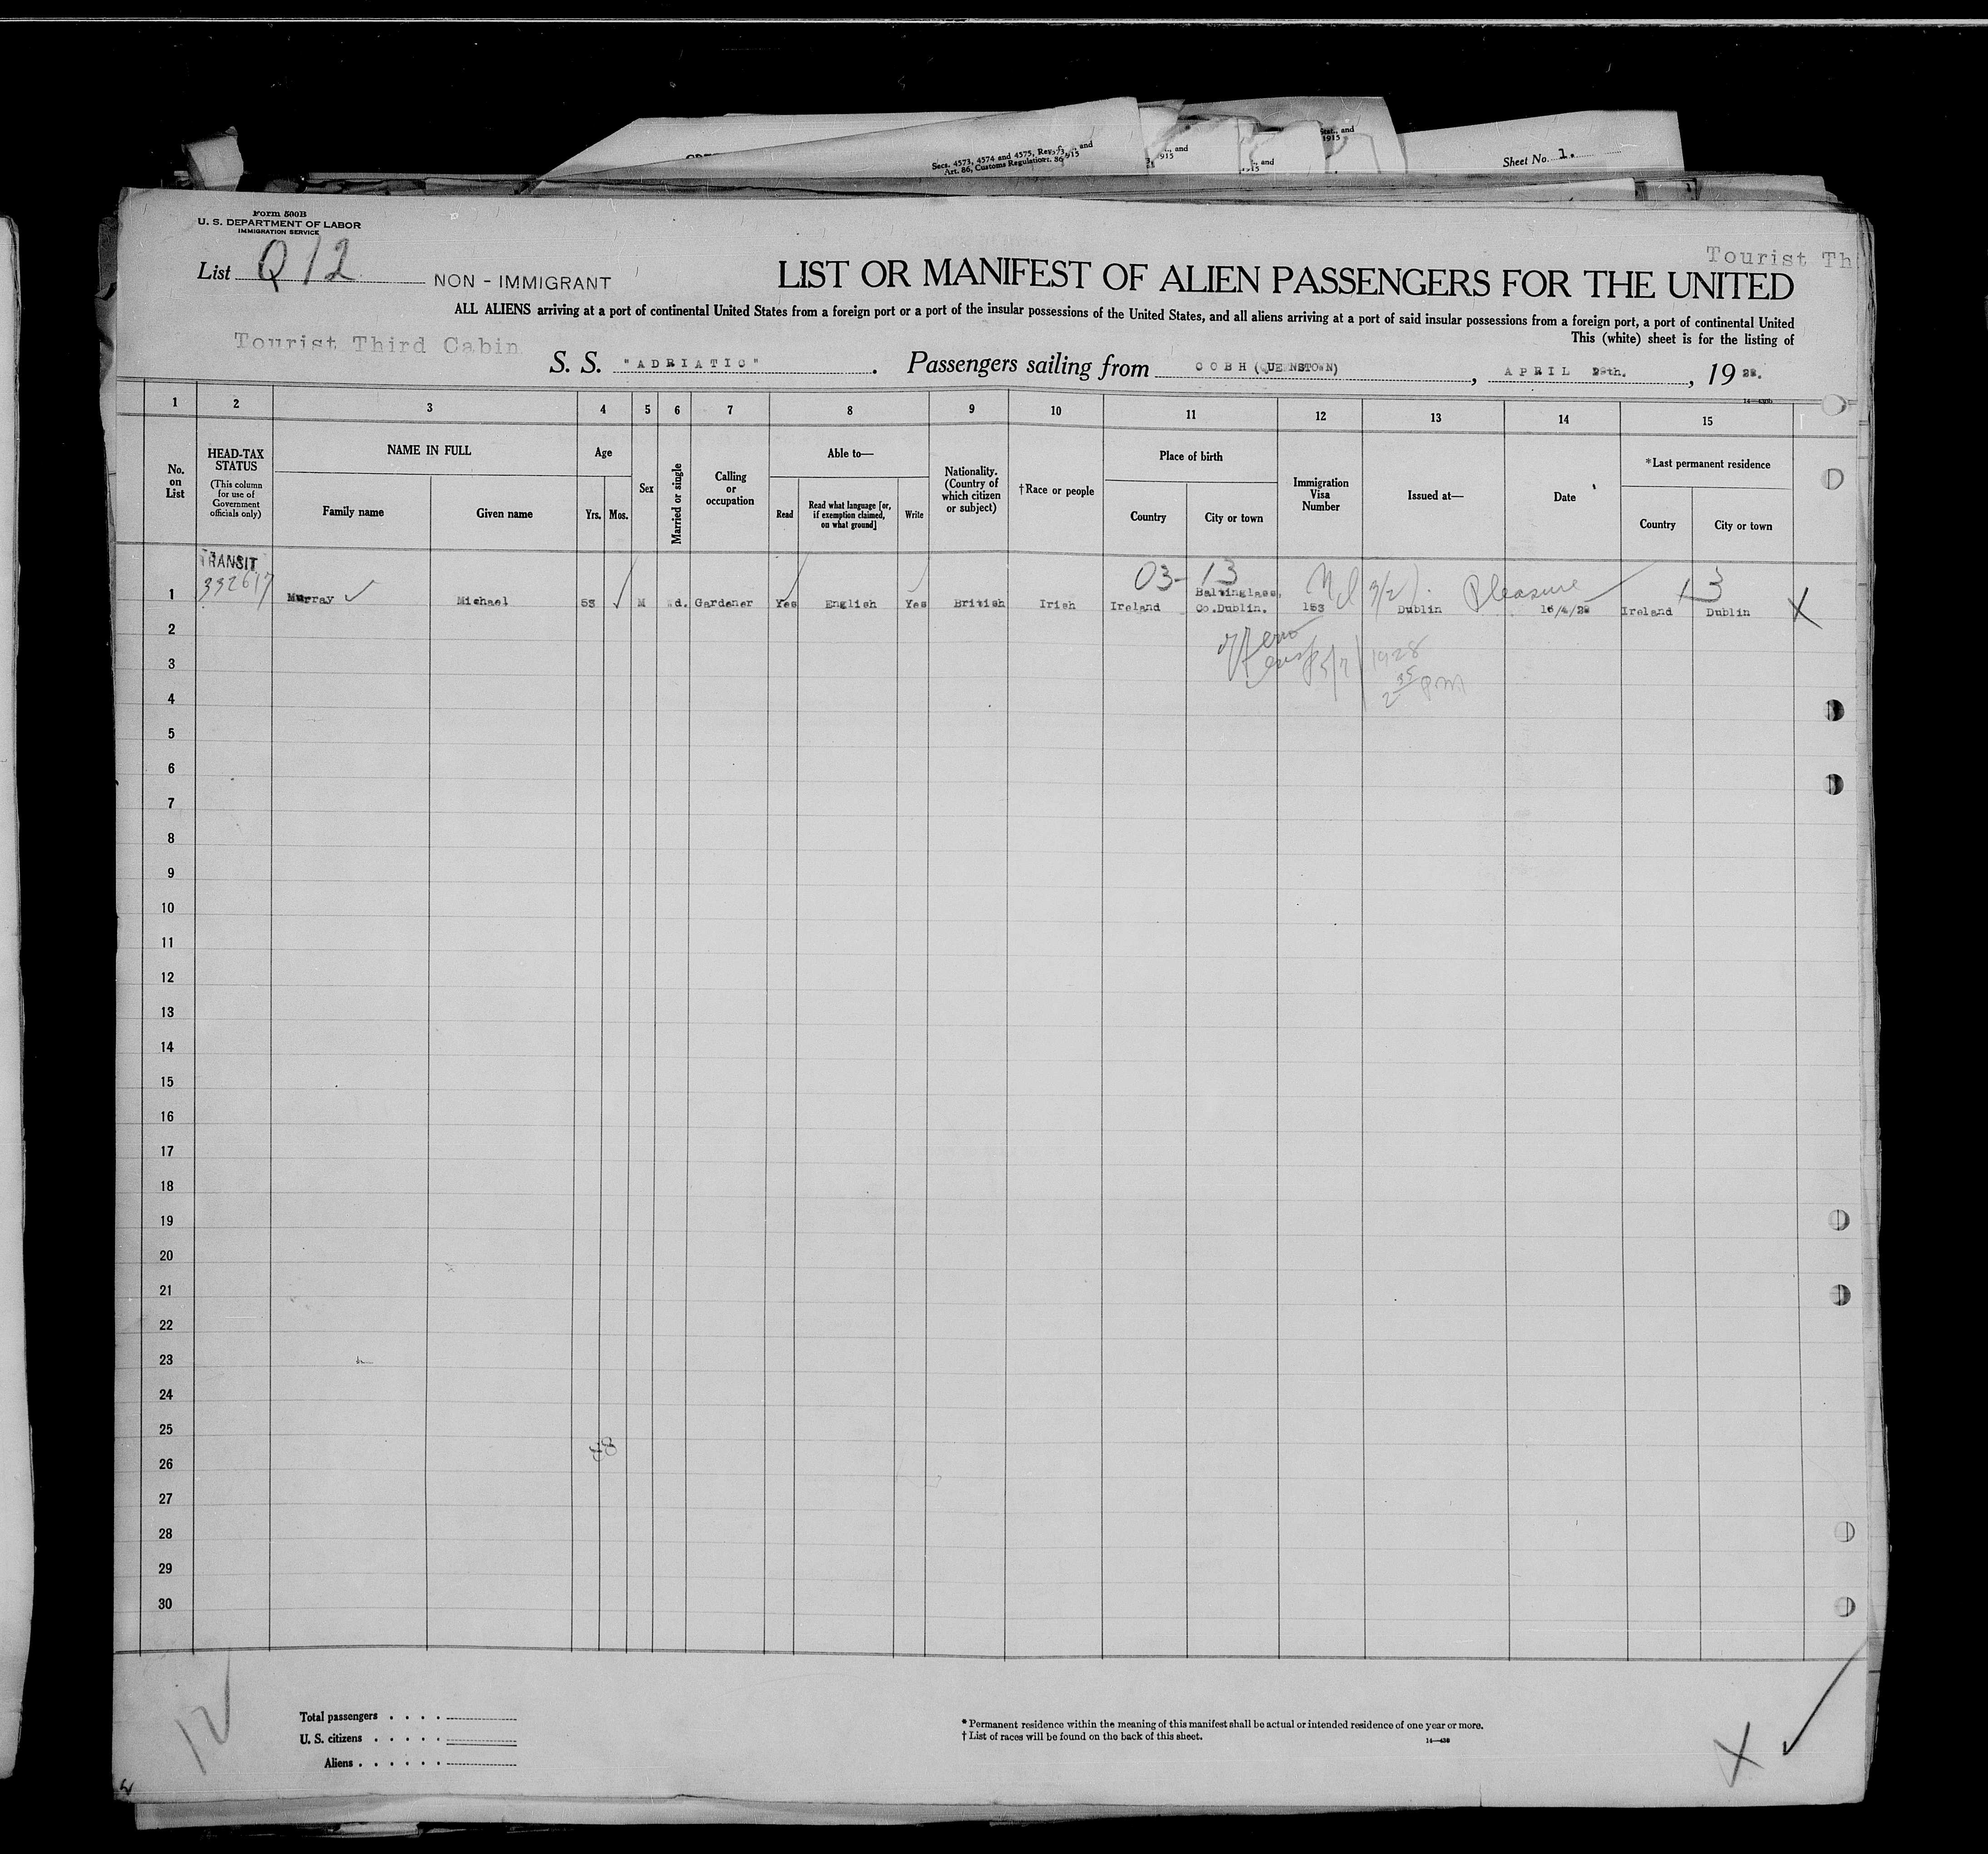 Secs. 4573, 4574 and 4575, Rev.
Art. 86, Customs Regulations.
and
1915
Stat., and
1915
Sheet No. 1.
Form 500B
U. S. DEPARTMENT OF LABOR
IMMIGRATION SERVICE
List Q 12
NON - IMMIGRANT
Tourist Th
LIST OR MANIFEST OF ALIEN PASSENGERS FOR THE UNITED
ALL ALIENS arriving at a port of continental United States from a foreign port or a port of the insular possessions of the United States, and all aliens arriving at a port of said insular possessions from a foreign port, a port of continental United
This (white) sheet is for the listing of
Tourist Third Cabin
S. S. "ADRIATIC". Passengers sailing from COBH (QUEENSTOWN), APRIL 29th., 1928.
1 2 3 4 5 6 7 8 9 10 11 12 13 14 15
No. on List
HEAD-TAX STATUS
(This column for use of Government officials only)
NAME IN FULL
Family name
Given name
Age
Yrs.
Mos.
Sex
Married or single
Calling or occupation
Able to—
Read
Read what language [or, if exemption claimed, on what ground]
Write
Nationality. (Country of which citizen or subject)
†Race or people
Place of birth
Country
City or town
Immigration Visa Number
Issued at—
Date
*Last permanent residence
Country
City or town
TRANSIT
332617
03-13
Pleasure
13
1 Murray Michael 53 M Wd. Gardener Yes English Yes British Irish Ireland Baltinglass, Co.Dublin. 153 Dublin 16/4/28 Ireland Dublin X
1928
2 35 pm
2
3
4
5
6
7
8
9
10
11
12
13
14
15
16
17
18
19
20
21
22
23
24
25
26
27
28
29
30
12
Total passengers
U. S. citizens
Aliens
*Permanent residence within the meaning of this manifest shall be actual or intended residence of one year or more.
†List of races will be found on the back of this sheet.
X